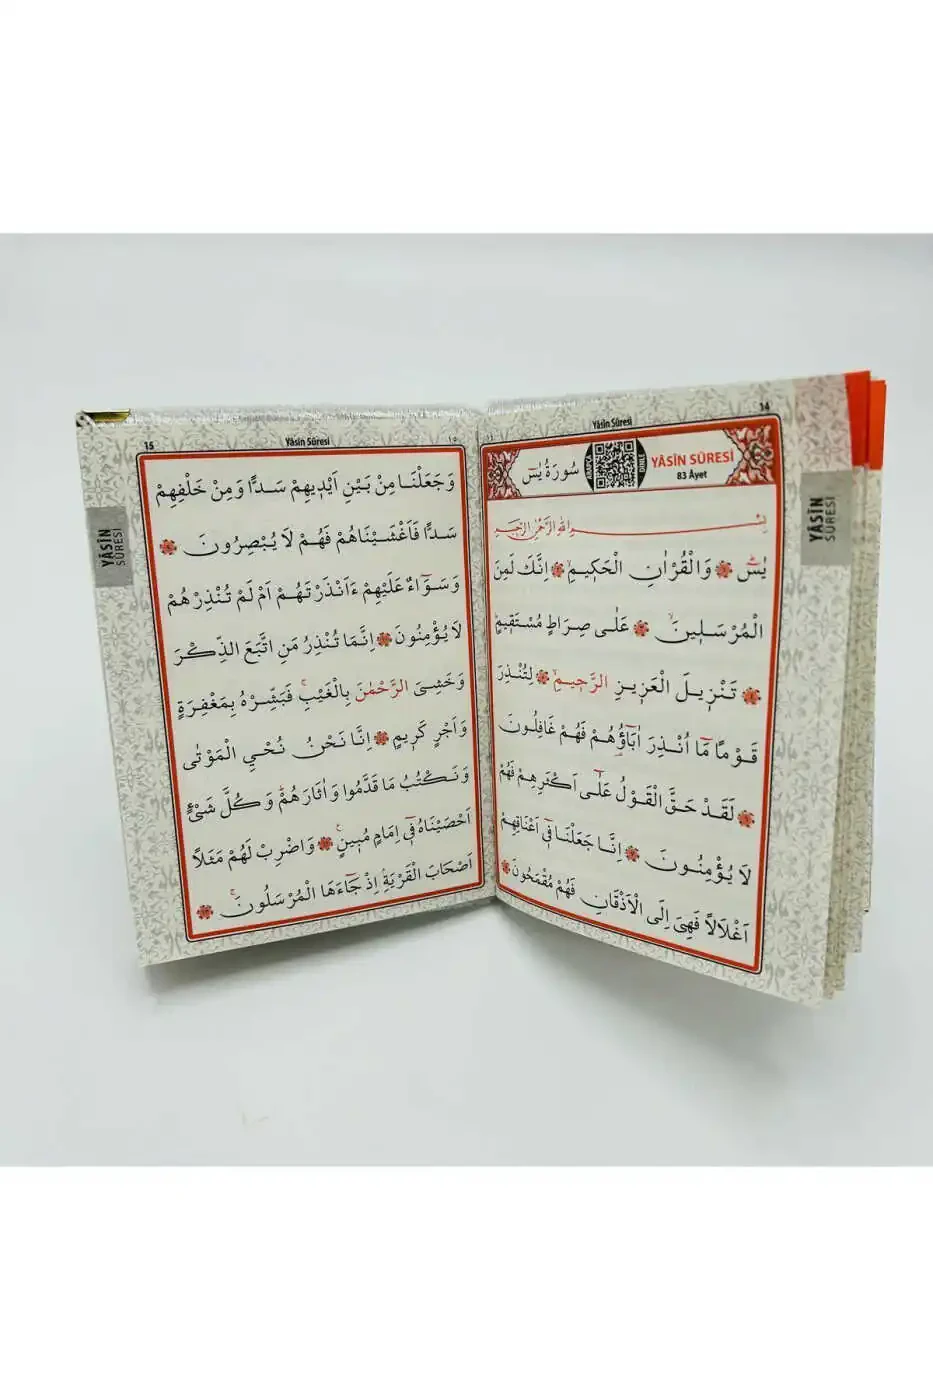 14
Yâsin Sûresi
YÂSİN SÛRESİ
83 Âyet
سُورَةُ يٰسٓ
بِسْمِ اللّٰهِ الرَّحْمٰنِ الرَّحِيمِ
يٰسٓ وَالْقُرْاٰنِ الْحَك۪يمِۙ اِنَّكَ لَمِنَ
الْمُرْسَل۪ينَۙ عَلٰى صِرَاطٍ مُسْتَق۪يمٍ
تَنْز۪يلَ الْعَز۪يزِ الرَّح۪يمِۙ لِتُنْذِرَ
قَوْمًا مَٓا اُنْذِرَ اٰبَٓاؤُ۬هُمْ فَهُمْ غَافِلُونَ
لَقَدْ حَقَّ الْقَوْلُ عَلٰٓى اَكْثَرِهِمْ فَهُمْ
لَا يُؤْمِنُونَ اِنَّا جَعَلْنَا ف۪ٓي اَعْنَاقِهِمْ
اَغْلَالًا فَهِيَ اِلَى الْاَذْقَانِ فَهُمْ مُقْمَحُونَ
YÂSİN
SÛRESİ
15
Yâsin Sûresi
١٥
وَجَعَلْنَا مِنْ بَيْنِ اَيْد۪يهِمْ سَدًّا وَمِنْ خَلْفِهِمْ
سَدًّا فَاَغْشَيْنَاهُمْ فَهُمْ لَا يُبْصِرُونَ
وَسَوَٓاءٌ عَلَيْهِمْ ءَاَنْذَرْتَهُمْ اَمْ لَمْ تُنْذِرْهُمْ
لَا يُؤْمِنُونَ اِنَّمَا تُنْذِرُ مَنِ اتَّبَعَ الذِّكْرَ
وَخَشِيَ الرَّحْمٰنَ بِالْغَيْبِۚ فَبَشِّرْهُ بِمَغْفِرَةٍ
وَاَجْرٍ كَر۪يمٍ اِنَّا نَحْنُ نُحْيِ الْمَوْتٰى
وَنَكْتُبُ مَا قَدَّمُوا وَاٰثَارَهُمْۜ وَكُلَّ شَيْءٍ
اَحْصَيْنَاهُ ف۪ٓي اِمَامٍ مُب۪ينٍ۟ وَاضْرِبْ لَهُمْ مَثَلًا
اَصْحَابَ الْقَرْيَةِۢ اِذْ جَٓاءَهَا الْمُرْسَلُونَۚ
YÂSİN
SÛRESİ